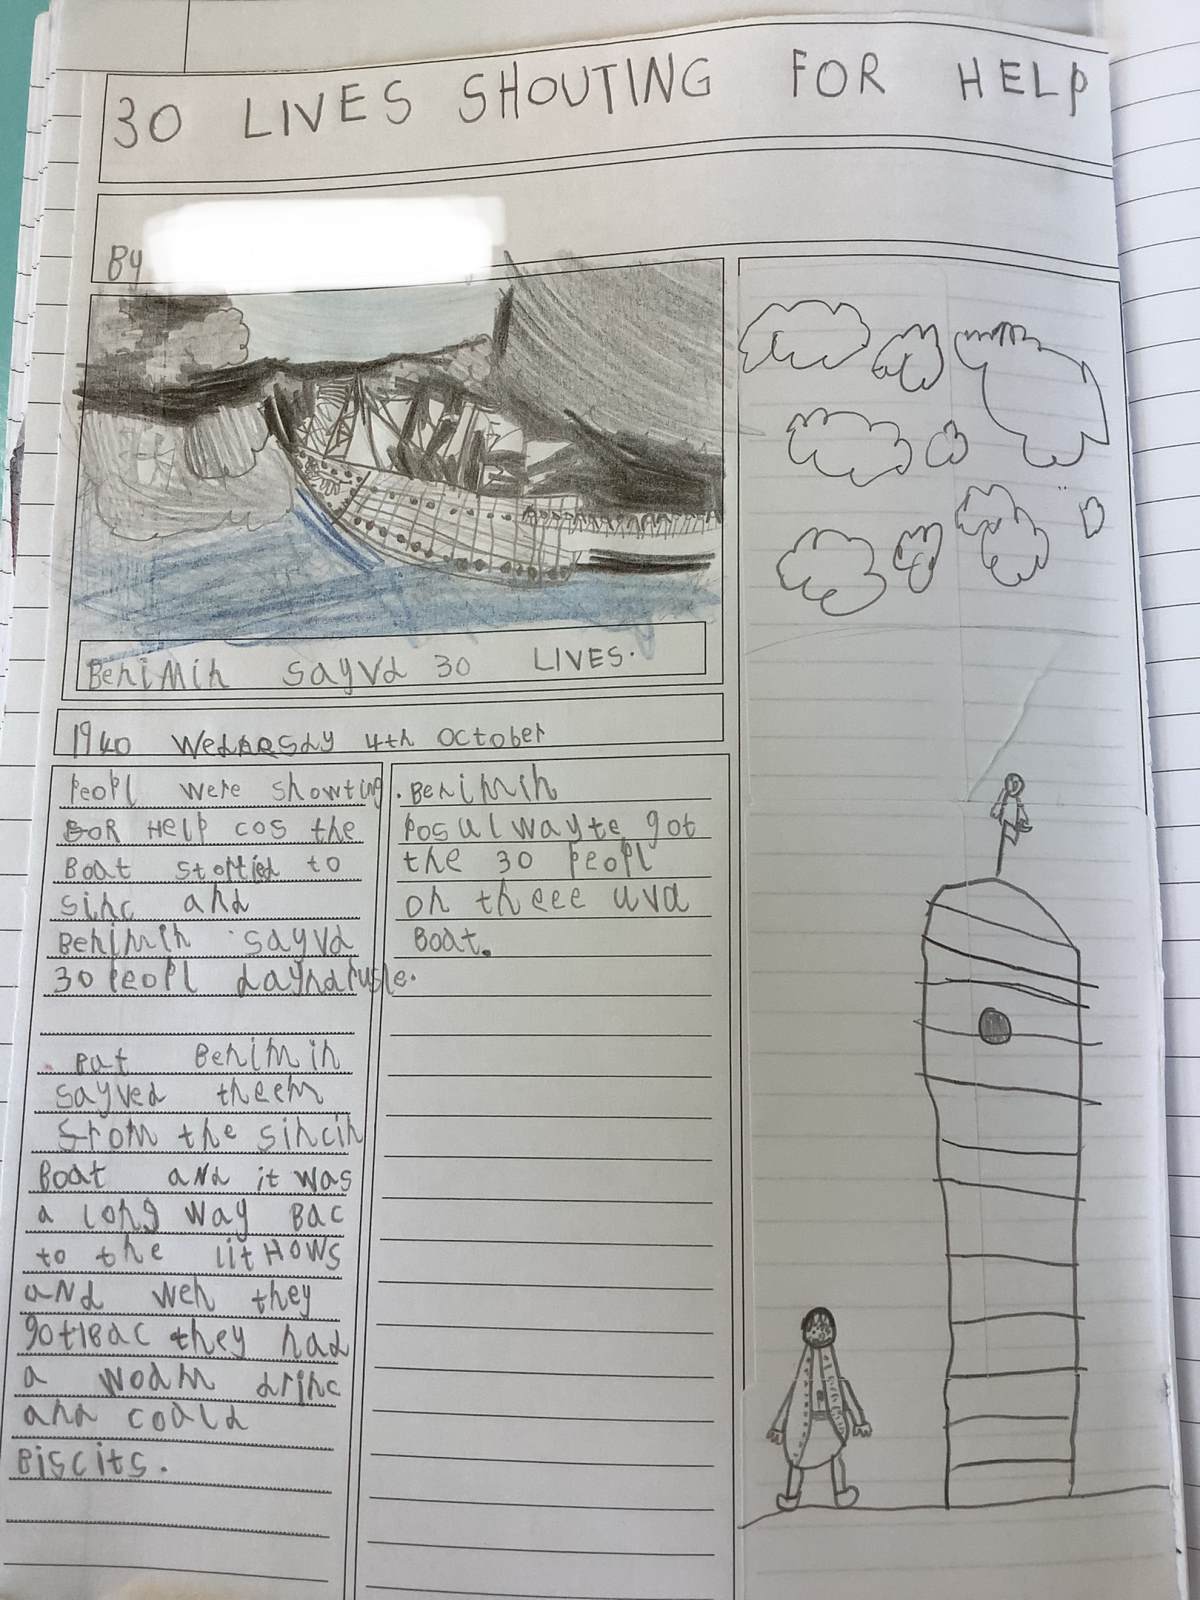 30 LIVES SHOUTING FOR HELP
By
Benimin sayvd 30 LIVES.
1940 Wednesday 4th October
Peopl were showting
FOR Help cos the
Boat stortid to
sinc and
Benimin sayvd
30 Peopl
But Benimin
sayved theem
from the sincin
Boat and it was
a long way Bac
to the litHows
and wen they
got Bac they had
a wodm drinc
and coald
Biscits.
Benimin
Posul wayte got
the 30 Peopl
on theee uva
Boat.